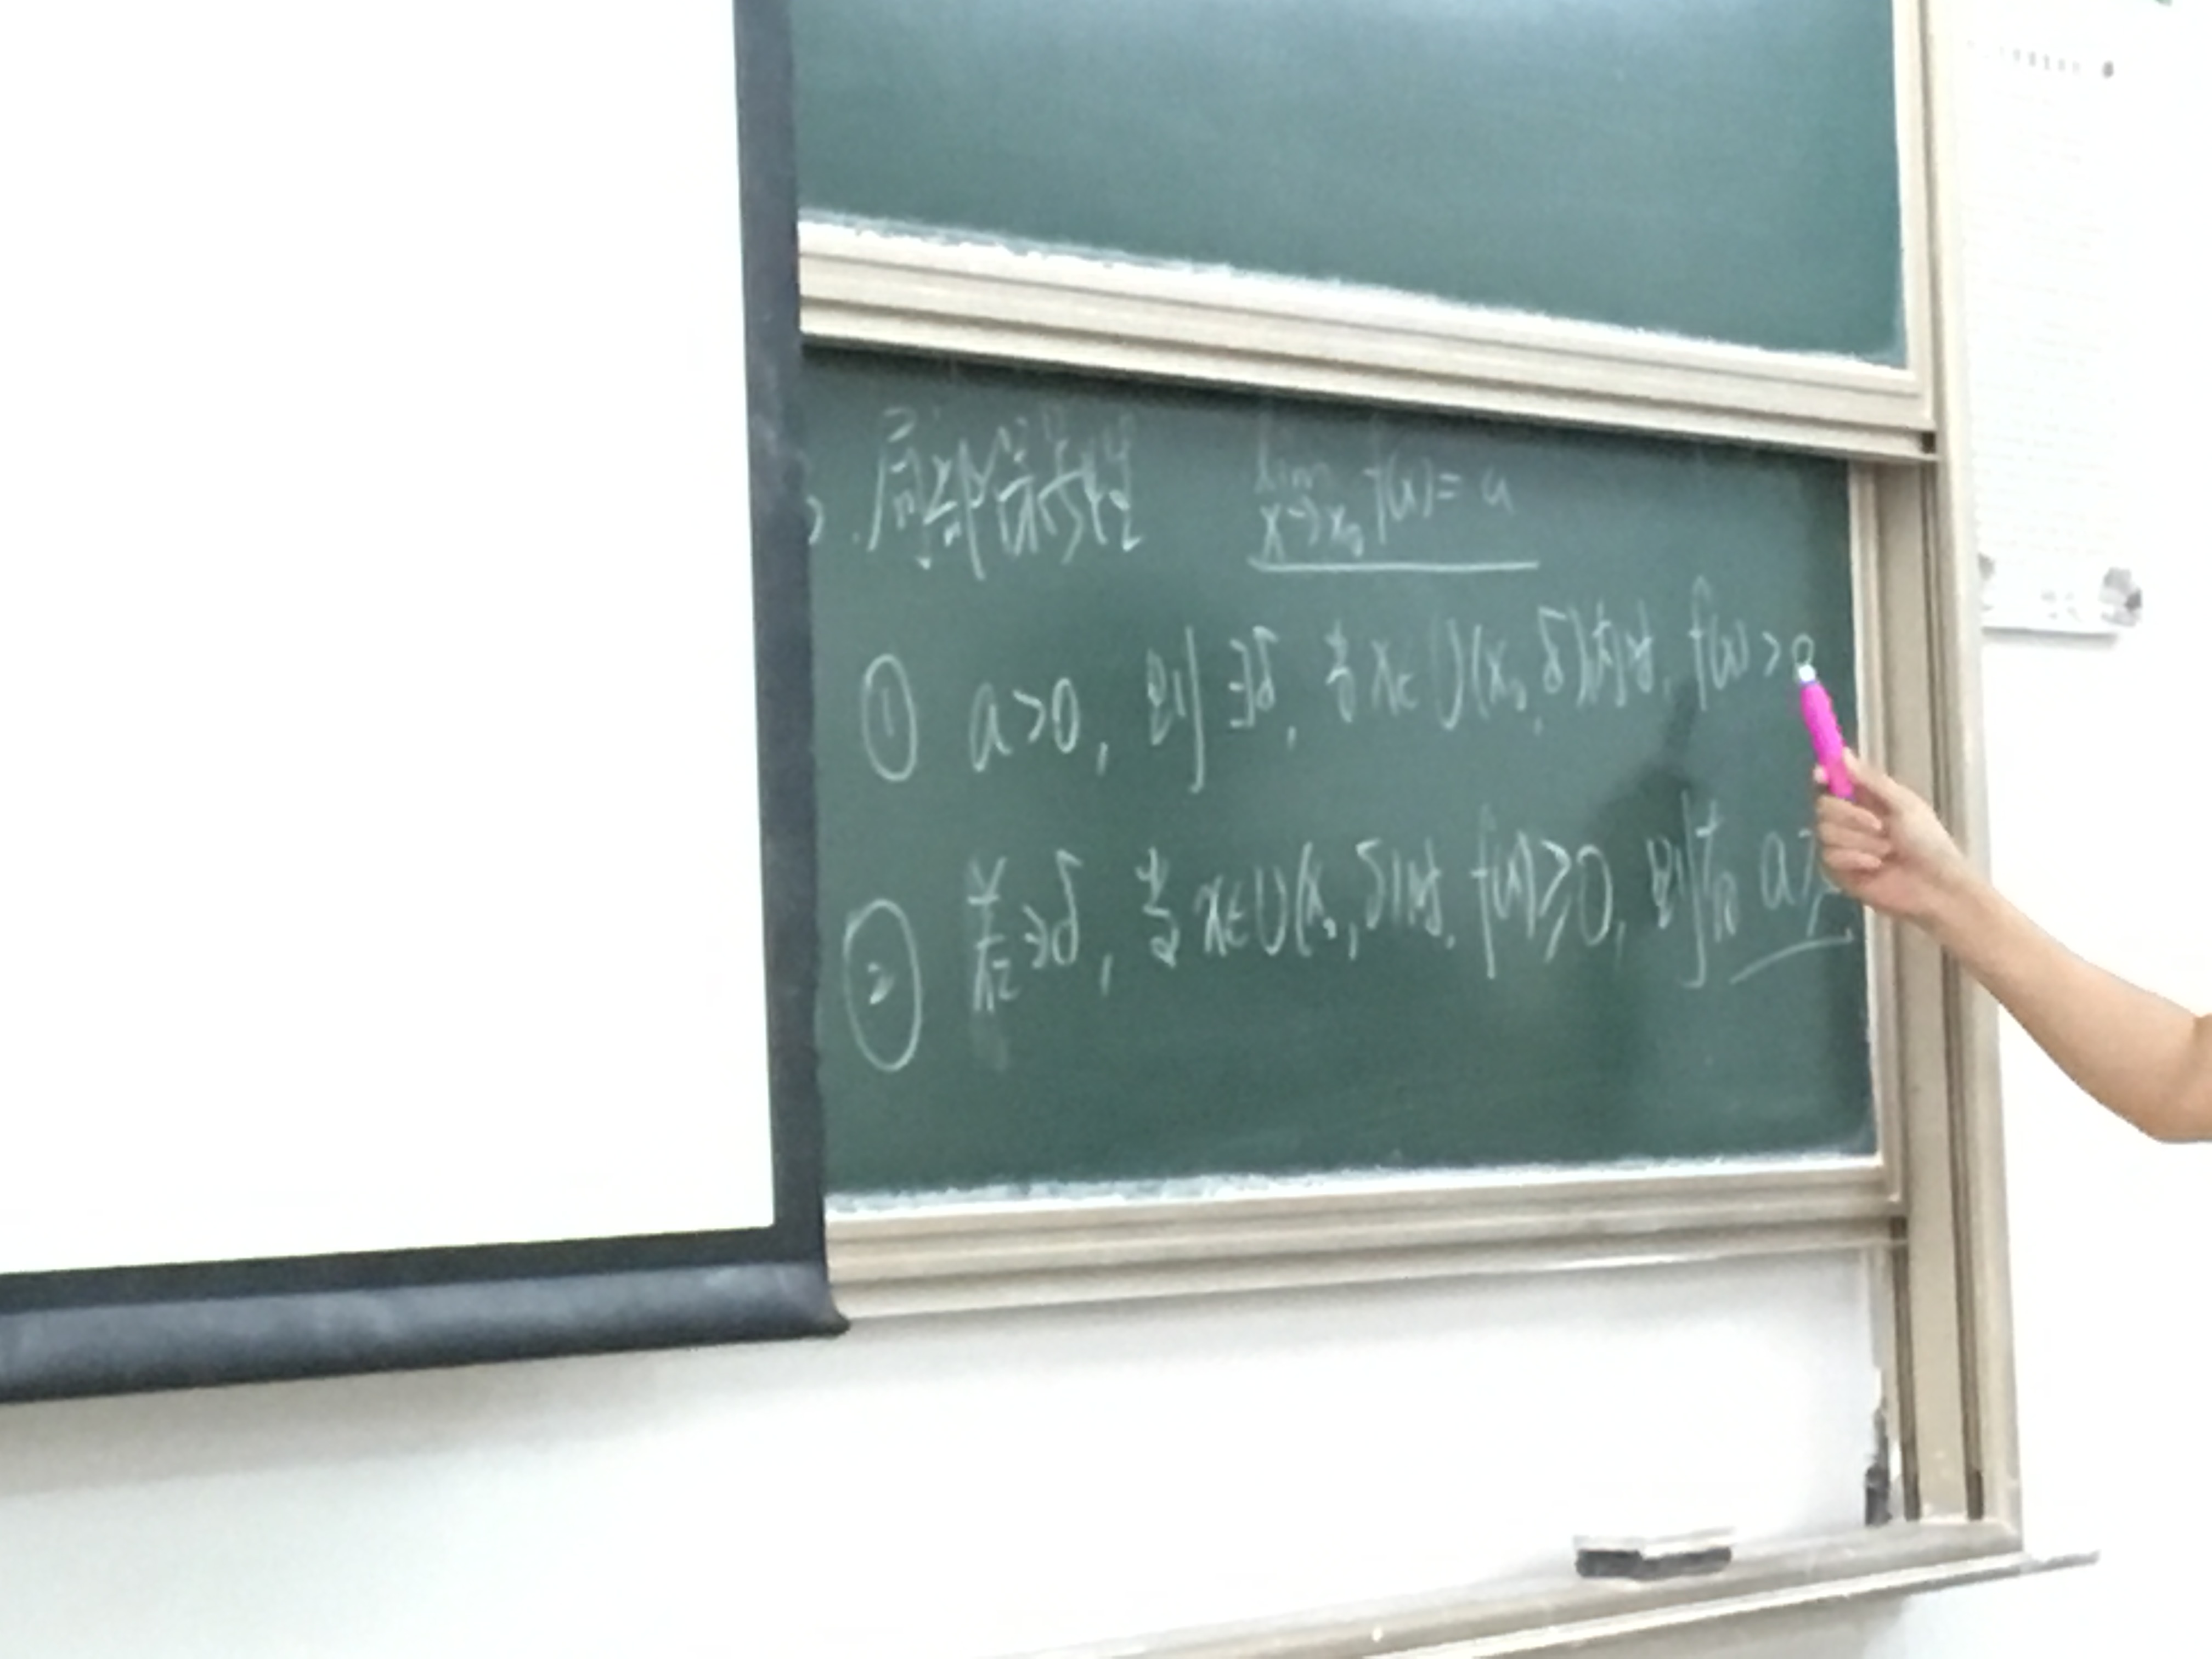 . 局部保号性 lim x→x₀ f(x) = a
① a>0, 则∃δ, 当x∈U(x₀, δ)内时, f(x)>0
② 若∃δ, 当x∈U(x₀, δ)时, f(x)≥0, 则有 a≥